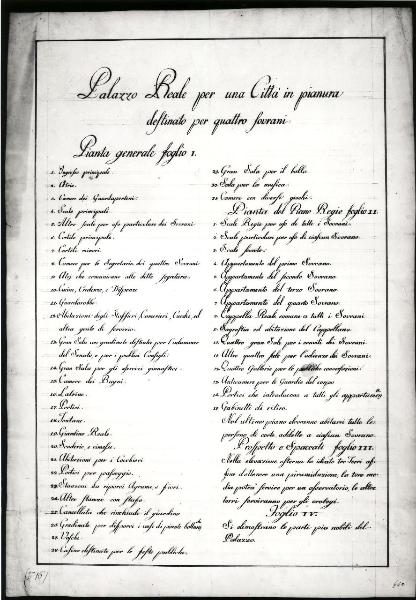 Palazzo Reale per una Città in pianura
destinato per quattro sovrani
Pianta generale foglio I.
1. Ingressi principali
2. Atrio.
3. Camere dei Guardaportoni.
4. Scale principali
5. Altre scale per uso particolare dei Sovrani
6. Cortile principale.
7. Cortili minori.
8. Camere per le Segretarie dei quattro Sovrani
9. che comunicano alle dette segretarie.
10. Cucine, Credenze, e Dispense
11. Guardarobbe
12. Abitazioni degli Staffieri, Camerieri, Cuochi, ed
altra gente di servizio.
13. Gran Sala con gradinate destinata per l'adunanza
del Senato, e per i publici Consigli
14. Gran Sala per gli esercizi ginnastici.
15. Camere dei Bagni.
16. Latrine.
17. Portici.
18. Fontane.
19. Giardino Reale
20. Scuderie, e rimesse.
21. Abitazioni per i Cocchieri
22. Portici per passeggio.
23. Stanzoni da riporvi Agrumi, e fiori.
24. Altre stanze con stufa
25. Cancellata che rinchiude il giardino
26. Gradinate per disporvi i vasi di piante botaniche
27. Vasche
28. Casino destinato per le feste publiche.
29. Gran Sala per il ballo
30. Sala per la musica.
31. Camere con diversi giochi.
Pianta del Piano Regio foglio II.
1. Scale Regie per uso di tutti i Sovrani.
2. Scale particolari per uso di ciascun Sovrano.
3. Scale
4. Appartamento del primo Sovrano.
5. Appartamento del secondo Sovrano
6. Appartamento del terzo Sovrano
7. Appartamento del quarto Sovrano.
8. Cappella Reale comune a tutti i Sovrani
9. Sagrestia ed abitazione del Cappellano.
10. Quattro gran Sale per i conviti dei Sovrani
11. Altre quattro sale per l'udienza dei Sovrani.
12. Quattro Gallerie per le publiche conversazioni
13. Anticamera per le Guardie del corpo
14. Portici che introducono a tutti gli appartamenti
15. Gabinetti di ritiro.
Nel ultimo piano dovranno abitarvi tutte le
persone di corte addette a ciascun Sovrano.
Prospetti e Spaccati foglio III.
Nella elevazione esterna ho ideato tre Torri
di una piramidazione, la torre me-
dia potrà servire per un osservatorio, le altre
torri serviranno per gli orologi.
Foglio IV.
Si dimostrano le parti più nobili del
Palazzo.